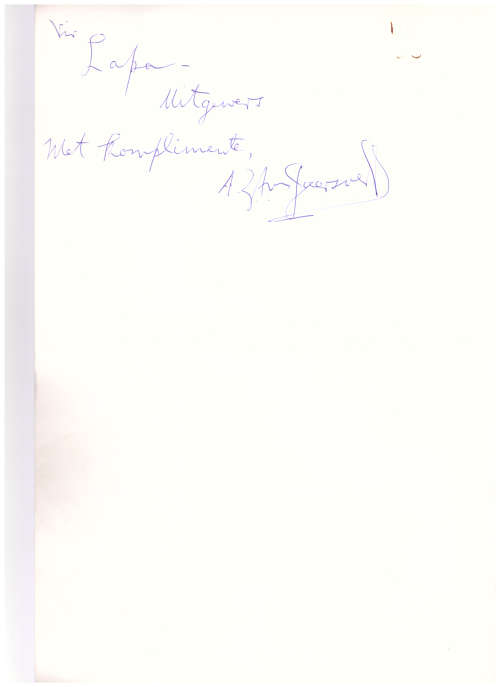 Vir
Lapa -
Uitgewers
Met Komplimente,